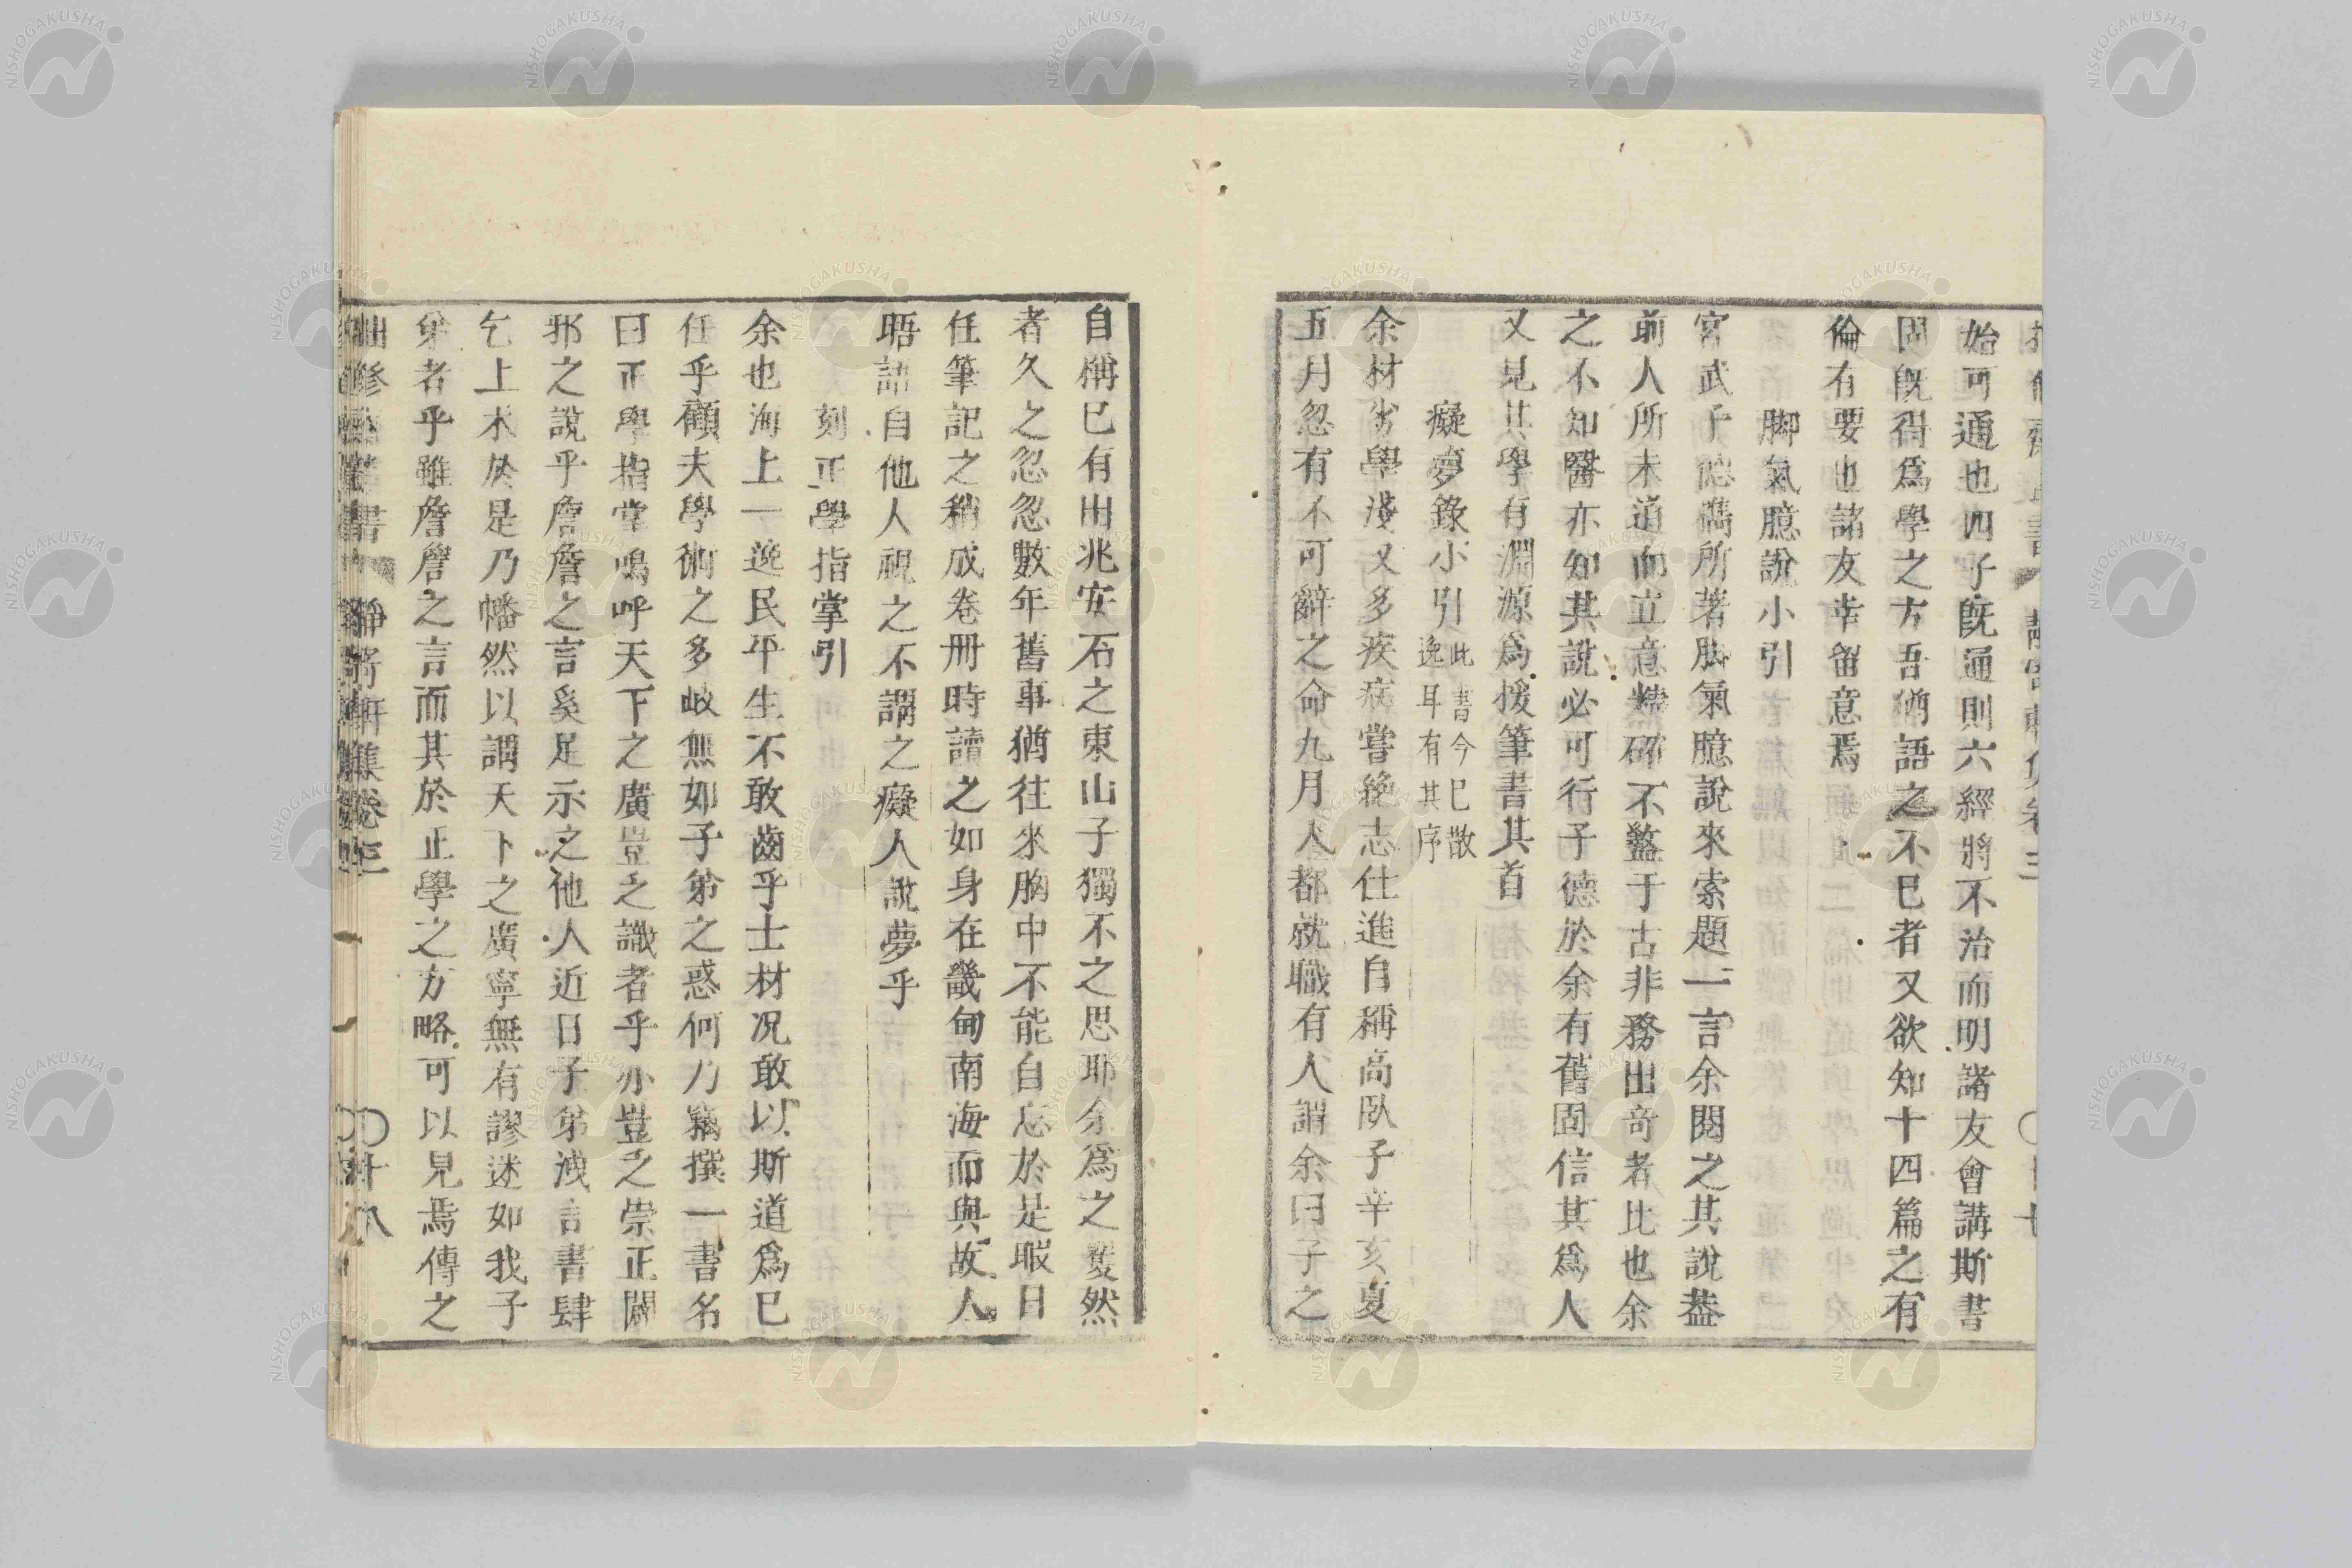 始可通也四子既通則六經將不治而明諸友會講斯書
固既得爲學之方吾猶語之不已者又欲知十四篇之有
倫有要也諸友幸留意焉
脚氣臆說小引
宮武子德碼所著脚氣臆說來索題一言余閱之其說葢
前人所未道而立意精硏不盩于古非務出奇者比也余
之不知醫亦知其說必可行子德於余有舊固信其爲人
又見其學有淵源爲援筆書其首
癡夢錄小引此書今已散
逸耳有其序
余材劣學淺又多疾病嘗絶志仕進自稱高臥子辛亥夏
五月忽有不可辭之命九月人都就職有人謂余曰子之
自稱已有由兆安石之東山子獨不之思耶余爲之戞然
者久之忽忽數年舊事猶往來胸中不能自忘於是暇日
任筆記之稍成卷冊時讀之如身在畿甸南海而與故人
晤語自他人視之不謂之癡人說夢乎
刻正學指掌引
余也海上一逸民平生不敢齒乎士材况敢以斯道爲已
任乎顧夫學術之多岐無如子弟之惑何乃竊撰一書名
曰正學指掌嗚呼天下之廣豈乏識者乎亦豈乏崇正闢
邪之說乎詹詹之言奚足示之他人近日子弟洩言書肆
乞上木於是乃幡然以謂天下之廣寧無有謬迷如我子
弟者乎雖詹詹之言而其於正學之方略可以見焉傳之
靜寄軒集卷三
〇廿八